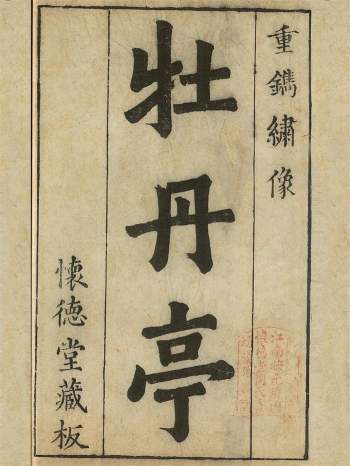 重鐫繡像
牡丹亭
懷德堂藏板